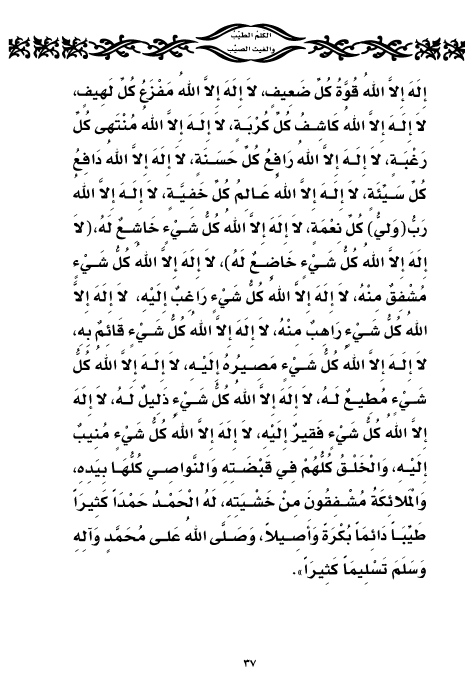 الكلم الطيّب
والغيث الصيّب
إِلَهَ إِلاَّ اللهُ قُوَّةُ كُلِّ ضَعِيفٍ، لاَ إِلَهَ إِلاَّ اللهُ مَفْزَعُ كُلِّ لَهِيفٍ،
لاَ إِلَهَ إِلاَّ اللهُ كَاشِفُ كُلِّ كُرْبَةٍ، لاَ إِلَهَ إِلاَّ اللهُ مُنْتَهى كُلِّ
رَغْبَةٍ، لاَ إِلَهَ إِلاَّ اللهُ رَافِعُ كُلِّ حَسَنَةٍ، لاَ إِلَهَ إِلاَّ اللهُ دَافِعُ
كُلِّ سَيِّئَةٍ، لاَ إِلَهَ إِلاَّ اللهُ عَالِمُ كُلِّ خَفِيَّةٍ، لاَ إِلَهَ إِلاَّ اللهُ
رَبُّ (وَلِيُّ) كُلِّ نِعْمَةٍ، لاَ إِلَهَ إِلاَّ اللهُ كُلُّ شَيْءٍ خَاشِعٌ لَهُ، (لاَ
إِلَهَ إِلاَّ اللهُ كُلُّ شَيْءٍ خَاضِعٌ لَهُ)، لاَ إِلَهَ إِلاَّ اللهُ كُلُّ شَيْءٍ
مُشْفِقٌ مِنْهُ، لاَ إِلَهَ إِلاَّ اللهُ كُلُّ شَيْءٍ رَاغِبٌ إِلَيْهِ، لاَ إِلَهَ إِلاَّ
اللهُ كُلُّ شَيْءٍ رَاهِبٌ مِنْهُ، لاَ إِلَهَ إِلاَّ اللهُ كُلُّ شَيْءٍ قَائِمٌ بِهِ،
لاَ إِلَهَ إِلاَّ اللهُ كُلُّ شَيْءٍ مَصِيرُهُ إِلَيْهِ، لاَ إِلَهَ إِلاَّ اللهُ كُلُّ
شَيْءٍ مُطِيعٌ لَهُ، لاَ إِلَهَ إِلاَّ اللهُ كُلُّ شَيْءٍ ذَلِيلٌ لَهُ، لاَ إِلَهَ
إِلاَّ اللهُ كُلُّ شَيْءٍ فَقِيرٌ إِلَيْهِ، لاَ إِلَهَ إِلاَّ اللهُ كُلُّ شَيْءٍ مُنِيبٌ
إِلَيْهِ، وَالْخَلْقُ كُلُّهُمْ فِي قَبْضَتِهِ وَالنَّوَاصِي كُلُّهَا بِيَدِهِ،
وَالْمَلائِكَةُ مُشْفِقُونَ مِنْ خَشْيَتِهِ، لَهُ الْحَمْدُ حَمْدَاً كَثِيرَاً
طَيِّبَاً دَائِمَاً بُكْرَةً وَأَصِيلاً، وَصَلَّى اللهُ عَلَى مُحَمَّدٍ وَآلِهِ
وَسَلَّمَ تَسْلِيمَاً كَثِيرَاً».
٣٧